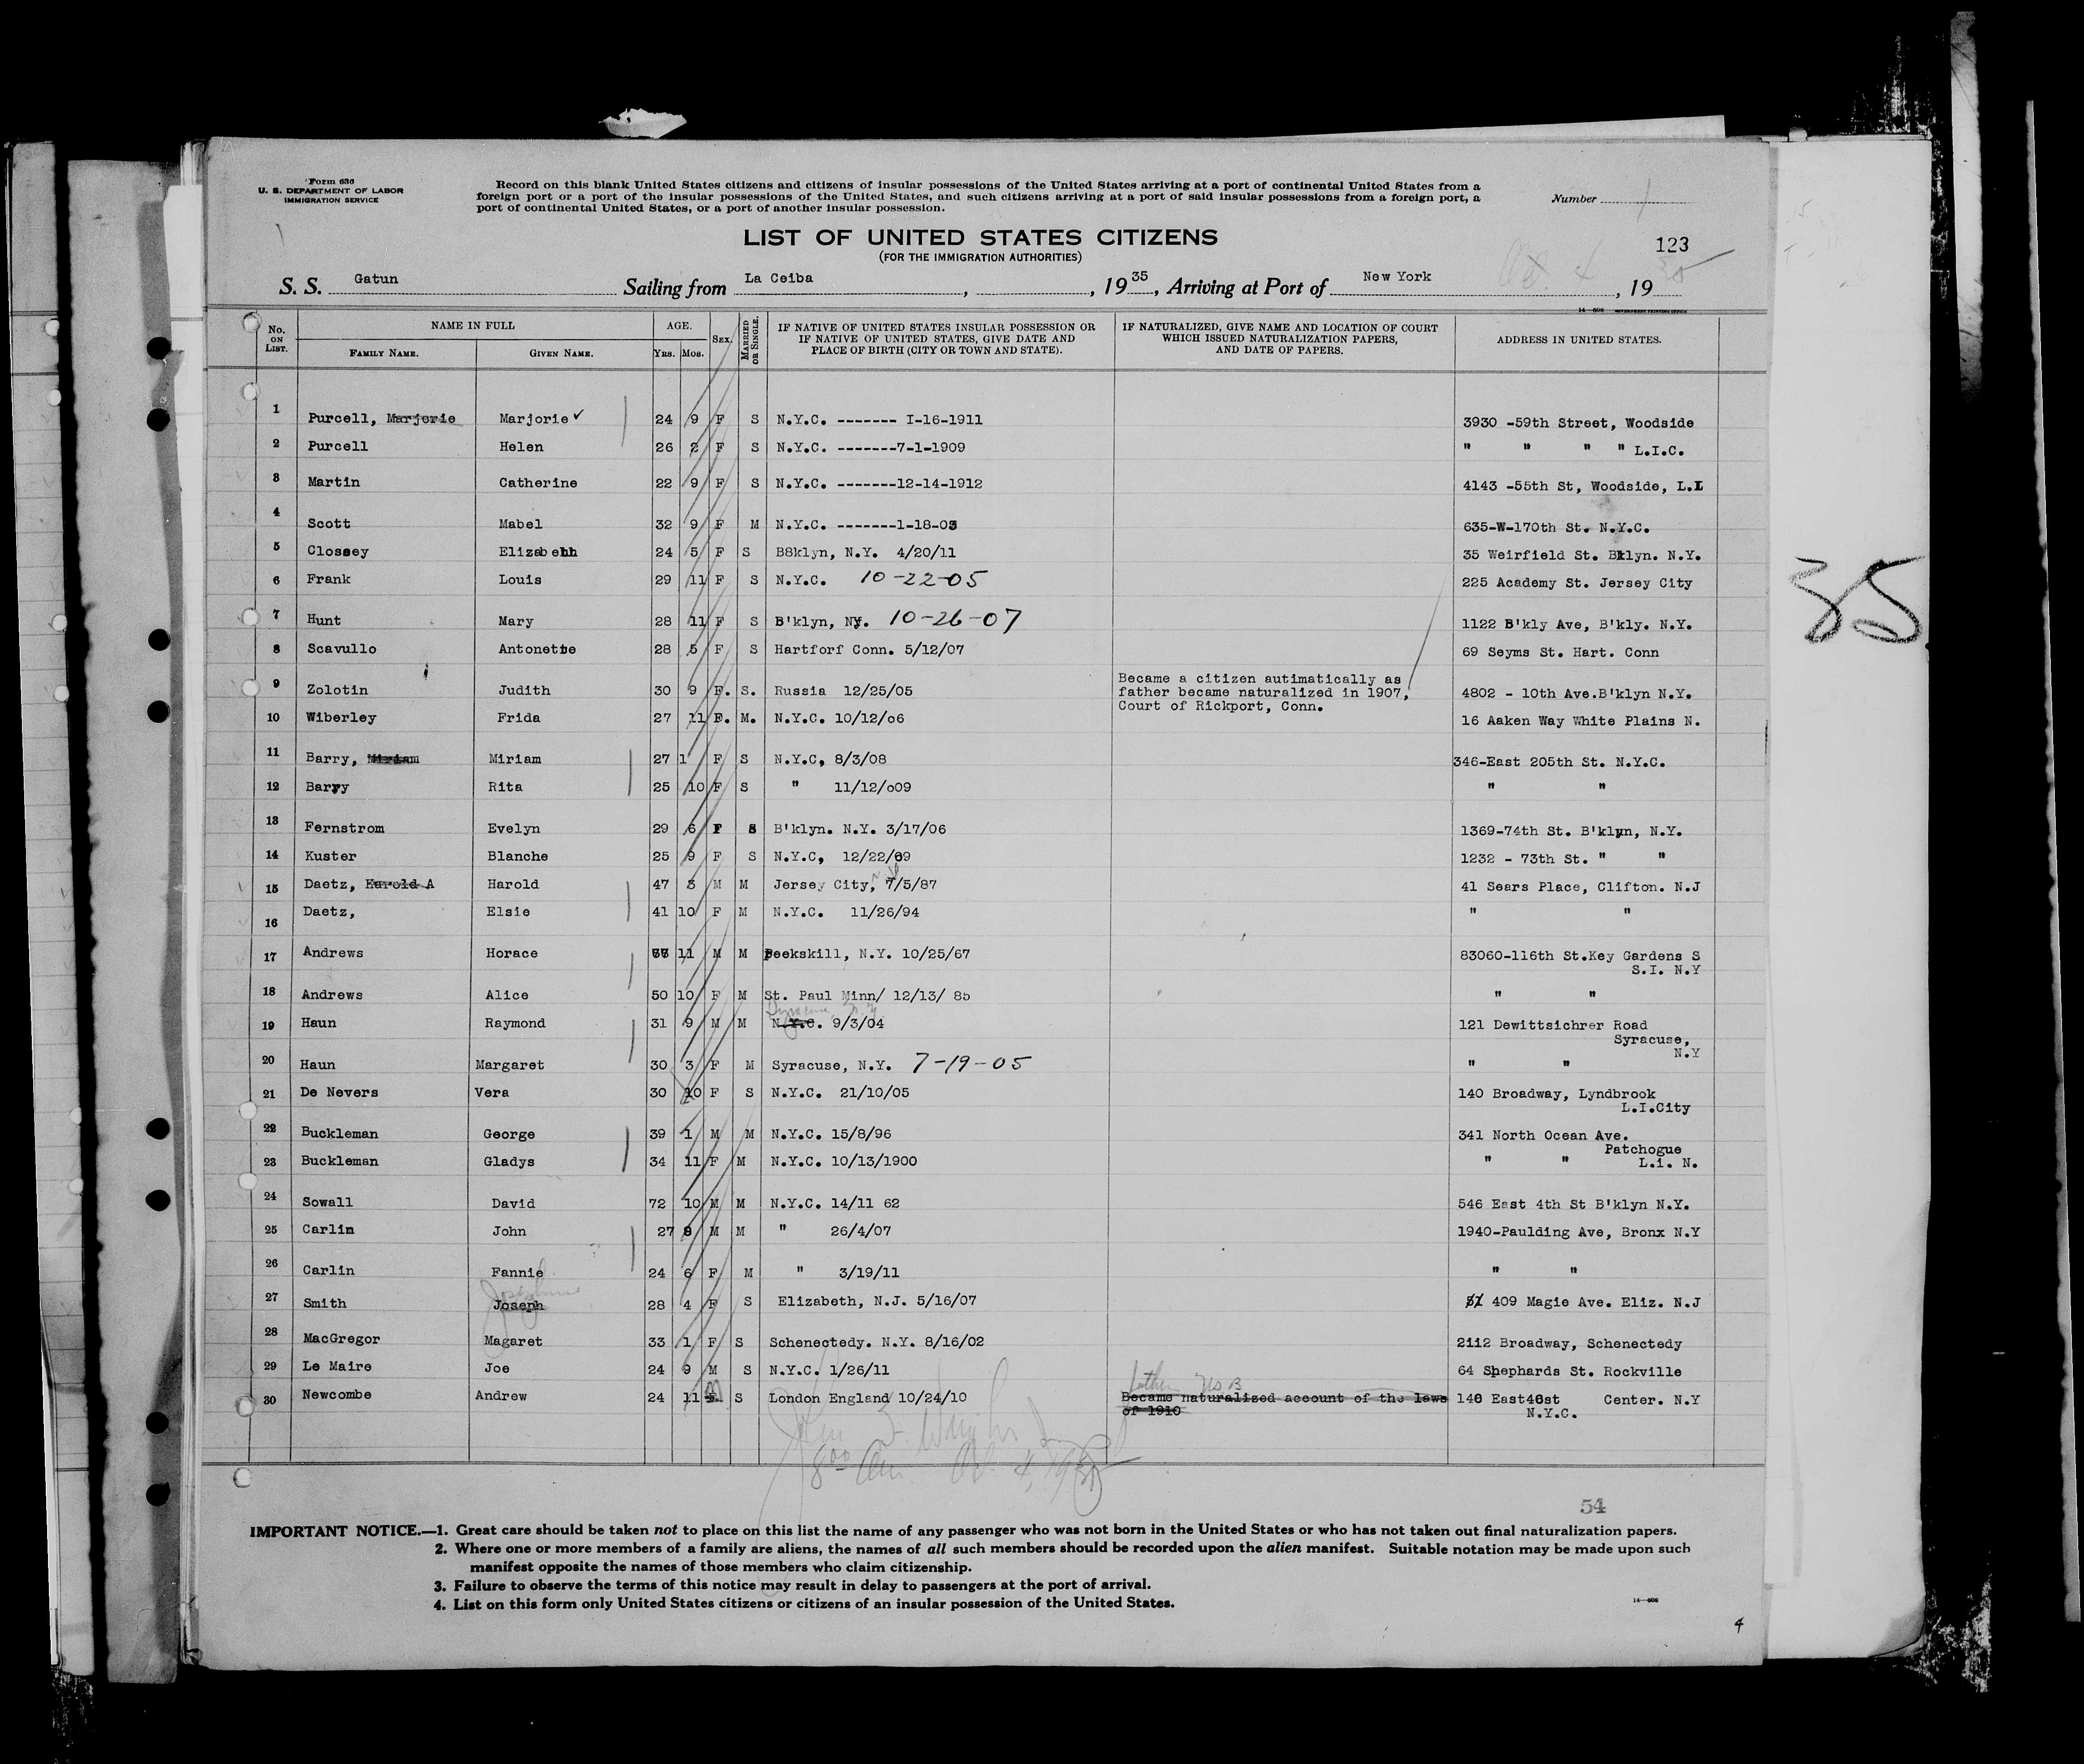 Form 636
U. S. DEPARTMENT OF LABOR
IMMIGRATION SERVICE
Record on this blank United States citizens and citizens of insular possessions of the United States arriving at a port of continental United States from a
foreign port or a port of the insular possessions of the United States, and such citizens arriving at a port of said insular possessions from a foreign port, a
port of continental United States, or a port of another insular possession.
Number 1
LIST OF UNITED STATES CITIZENS
(FOR THE IMMIGRATION AUTHORITIES)
123
S. S. Gatun Sailing from La Ceiba, , 1935, Arriving at Port of New York Oct. 4, 1935
No. ON LIST. NAME IN FULL AGE. SEX. MARRIED OR SINGLE. IF NATIVE OF UNITED STATES INSULAR POSSESSION OR IF NATIVE OF UNITED STATES, GIVE DATE AND PLACE OF BIRTH (CITY OR TOWN AND STATE). IF NATURALIZED, GIVE NAME AND LOCATION OF COURT WHICH ISSUED NATURALIZATION PAPERS, AND DATE OF PAPERS. ADDRESS IN UNITED STATES.
FAMILY NAME. GIVEN NAME. YRS. MOS.
1 Purcell, Marjorie Marjorie ✓ 24 9 F S N.Y.C. ------- I-16-1911 3930 -59th Street, Woodside
2 Purcell Helen 26 2 F S N.Y.C. -------7-1-1909 " " " " L.I.C.
3 Martin Catherine 22 9 F S N.Y.C. -------12-14-1912 4143 -55th St, Woodside, L.I
4 Scott Mabel 32 9 F M N.Y.C. -------1-18-03 635-W-170th St. N.Y.C.
5 Clossey Elizabehh 24 5 F S B8klyn, N.Y. 4/20/11 35 Weirfield St. Bklyn. N.Y.
6 Frank Louis 29 11 F S N.Y.C. 10-22-05 225 Academy St. Jersey City
7 Hunt Mary 28 11 F S B'klyn, Ny. 10-26-07 1122 B'kly Ave, B'kly. N.Y.
8 Scavullo Antonette 28 5 F S Hartforf Conn. 5/12/07 69 Seyms St. Hart. Conn
9 Zolotin Judith 30 9 F. S. Russia 12/25/05 Became a citizen autimatically as
father became naturalized in 1907,
Court of Rickport, Conn. 4802 - 10th Ave.B'klyn N.Y.
10 Wiberley Frida 27 11 F. M. N.Y.C. 10/12/o6 16 Aaken Way White Plains N.
11 Barry, Miriam Miriam 27 1 F S N.Y.C, 8/3/08 346-East 205th St. N.Y.C.
12 Barry Rita 25 10 F S " 11/12/o09 " "
13 Fernstrom Evelyn 29 6 F S B'klyn. N.Y. 3/17/06 1369-74th St. B'klyn, N.Y.
14 Kuster Blanche 25 9 F S N.Y.C, 12/22/09 1232 - 73th St. " "
15 Daetz, Harold A Harold 47 3 M M Jersey City, 7/5/87 41 Sears Place, Clifton. N.J
16 Daetz, Elsie 41 10 F M N.Y.C. 11/26/94 " "
17 Andrews Horace 11 M M Peekskill, N.Y. 10/25/67 83060-116th St.Key Gardens S
S.I. N.Y
18 Andrews Alice 50 10 F M St. Paul Minn/ 12/13/ 85 " "
Syracuse, N.Y.
19 Haun Raymond 31 9 M M N.Y.C. 9/3/04 121 Dewittsichrer Road
Syracuse,
N.Y
20 Haun Margaret 30 3 F M Syracuse, N.Y. 7-19-05 " "
21 De Nevers Vera 30 10 F S N.Y.C. 21/10/05 140 Broadway, Lyndbrook
L.I.City
22 Buckleman George 39 1 M M N.Y.C. 15/8/96 341 North Ocean Ave.
Patchogue
23 Buckleman Gladys 34 11 F M N.Y.C. 10/13/1900 " " L.i. N.
24 Sowall David 72 10 M M N.Y.C. 14/11 62 546 East 4th St B'klyn N.Y.
25 Carlin John 27 8 M M " 26/4/07 1940-Paulding Ave, Bronx N.Y
26 Carlin Fannie 24 6 F M " 3/19/11 " "
Josephine
27 Smith Joseph 28 4 F S Elizabeth, N.J. 5/16/07 409 Magie Ave. Eliz. N.J
28 MacGregor Magaret 33 1 F S Schenectedy. N.Y. 8/16/02 2112 Broadway, Schenectedy
29 Le Maire Joe 24 9 M S N.Y.C. 1/26/11 64 Shephards St. Rockville
Center. N.Y
father US B
30 Newcombe Andrew 24 11 M S London England 10/24/10 Became naturalized account of the laws
of 1910 140 East40st
N.Y.C.
8 00 am Oct 4, 1935
54
IMPORTANT NOTICE.—1. Great care should be taken not to place on this list the name of any passenger who was not born in the United States or who has not taken out final naturalization papers.
2. Where one or more members of a family are aliens, the names of all such members should be recorded upon the alien manifest. Suitable notation may be made upon such
manifest opposite the names of those members who claim citizenship.
3. Failure to observe the terms of this notice may result in delay to passengers at the port of arrival.
4. List on this form only United States citizens or citizens of an insular possession of the United States.
4
35